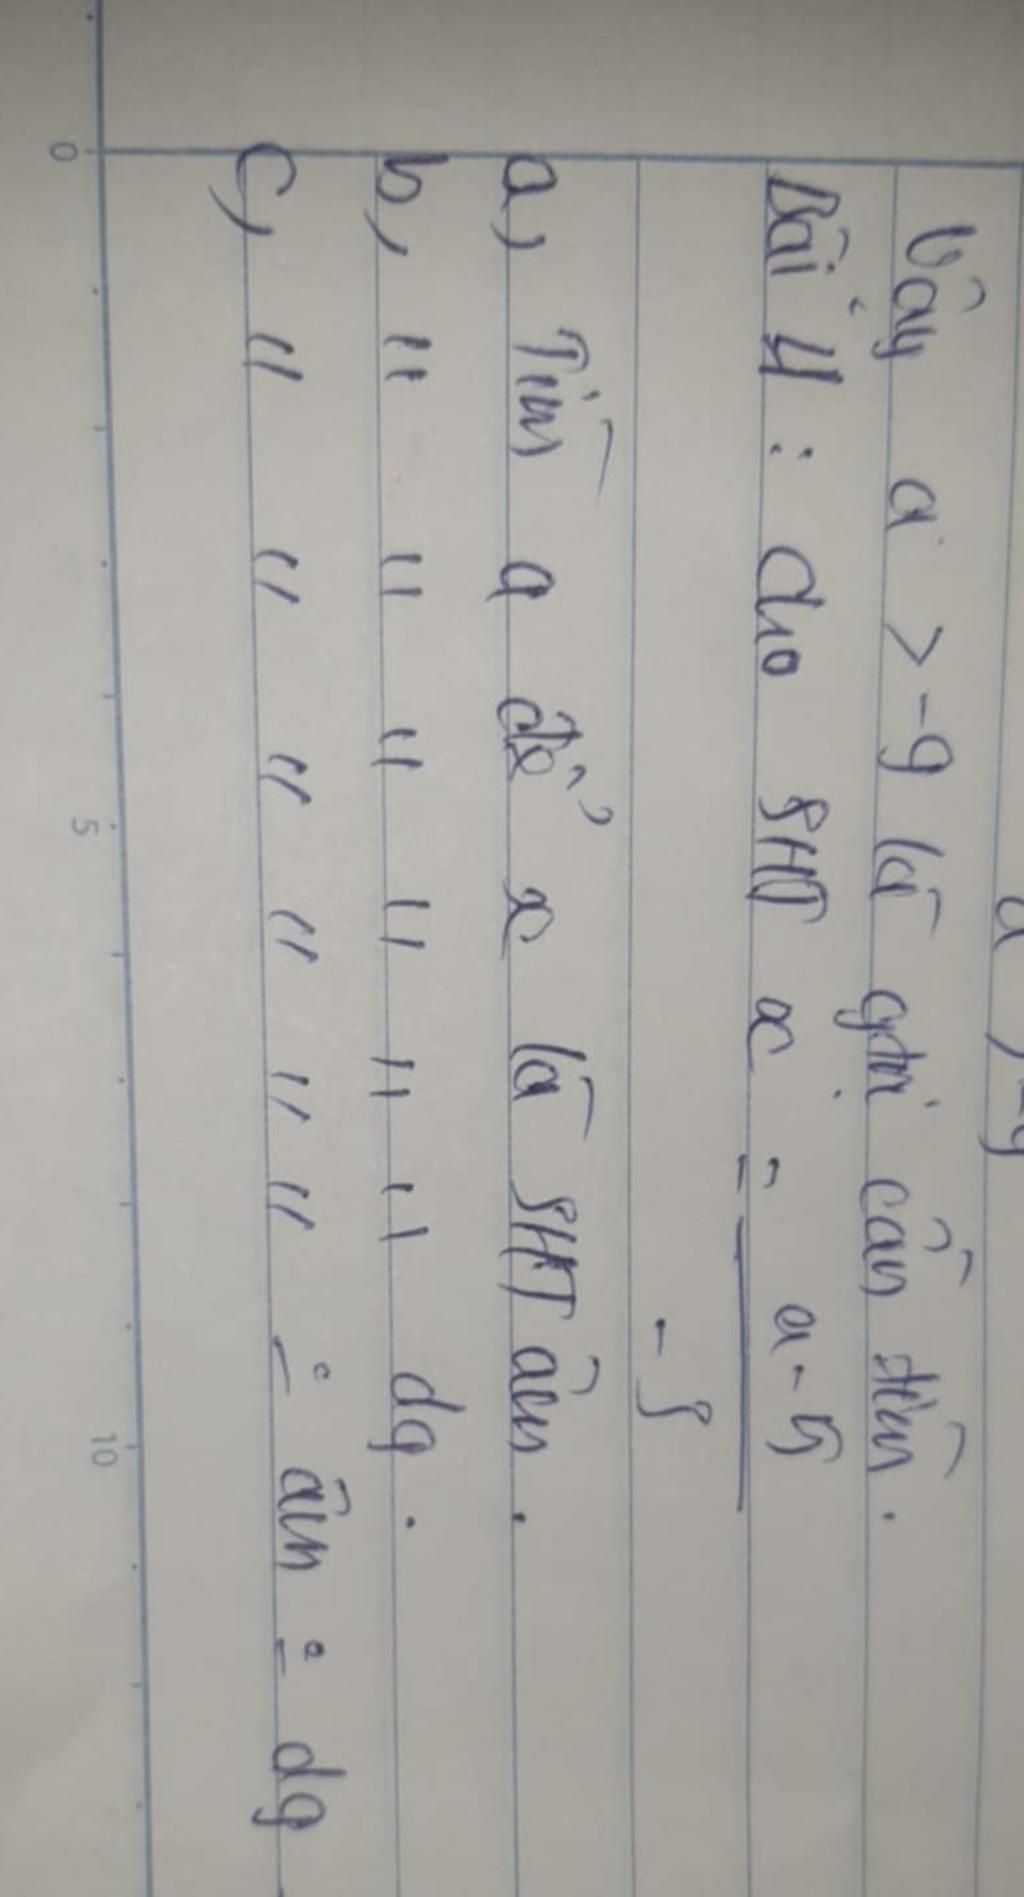 Vậy a > -9 là gtrị cần tìm.
Bài 4 : Cho SHT x = a-5
-8
a, Tìm a để x là SHT âm.
b, " " " " " " dg.
c, " " " " " " = âm = dg
0 5 10